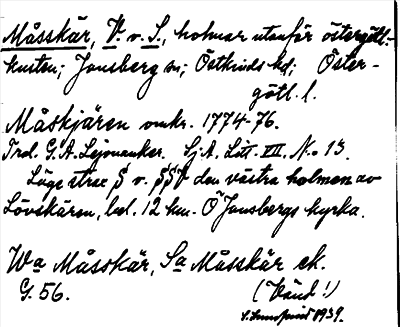 Måsskär, V. o. S., holmar utanför östergötl.-
kusten; Jonsberg sn; Östkinds hd; Öster-
götl. l.
Måskjären omkr. 1774-76.
Trol. G. A. Lejonanker. Sj. A. Litt. VII, No 13.
Läge strax S o. SSV den västra holmen av
Lövskären, bel. 12 km. O Jonsbergs kyrka.
Wa Måsskär, Sa Måsskär ek.
G. 56.
(Vänd!)
1939.